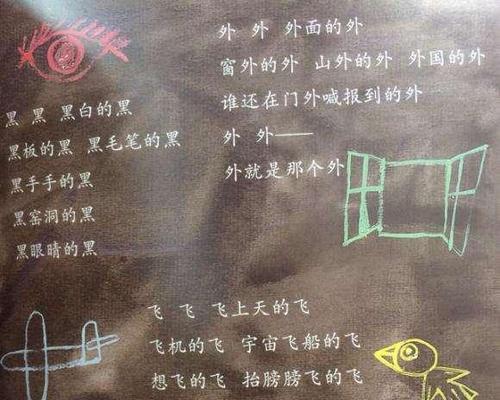 外 外 外面的外
窗外的外 山外的外 外国的外
谁还在门外喊报到的外
外 外——
外就是那个外
黑 黑 黑白的黑
黑板的黑 黑毛笔的黑
黑手手的黑
黑窑洞的黑
黑眼睛的黑
飞 飞 飞上天的飞
飞机的飞 宇宙飞船的飞
想飞的飞 抬膀膀飞的飞